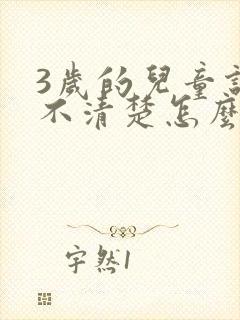 3歲的兒童
不清楚怎麼
字然1